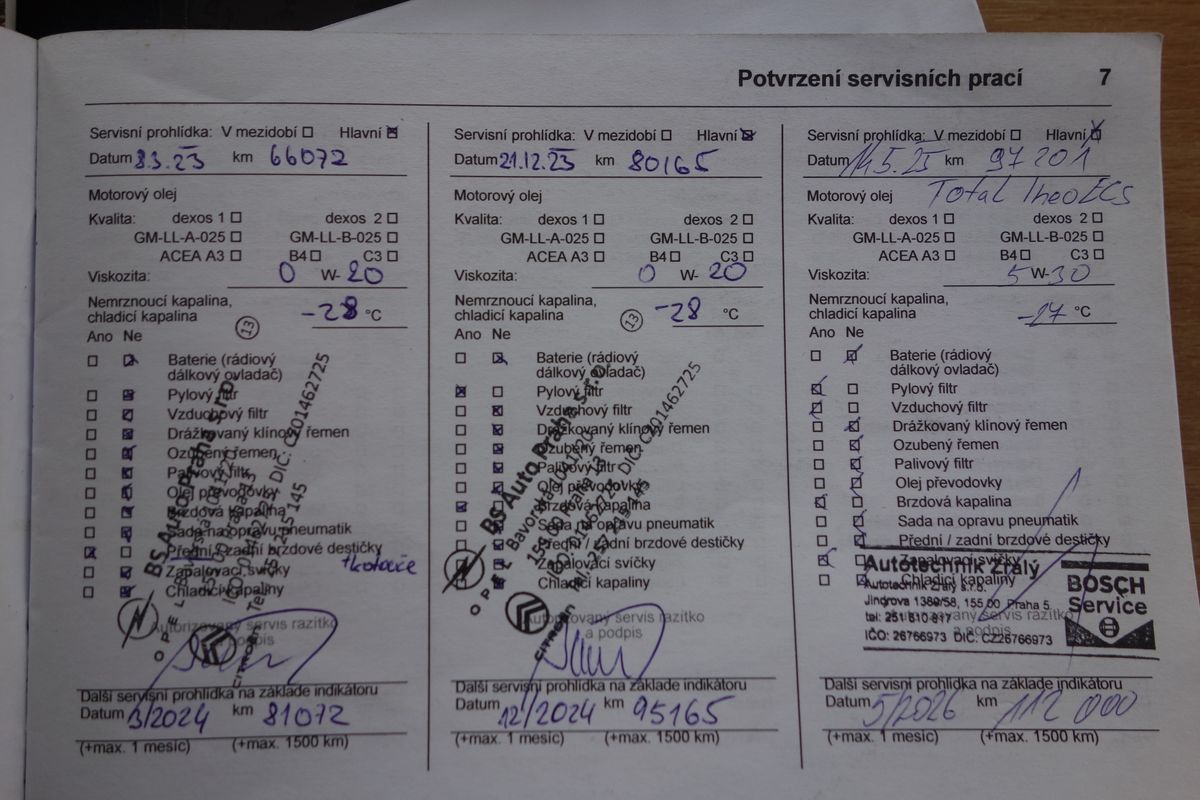 Potvrzení servisních prací 7
Servisní prohlídka: V mezidobí Hlavní
Datum 8.3.23 km 66072
Motorový olej
Kvalita: dexos 1 dexos 2
GM-LL-A-025 GM-LL-B-025
ACEA A3 B4 C3
Viskozita: 0 W- 20
Nemrznoucí kapalina,
chladicí kapalina -28 °C
13
Ano Ne
Baterie (rádiový
dálkový ovladač)
Pylový filtr
Vzduchový filtr
Drážkovaný klínový řemen
Ozubený řemen
Palivový filtr
Olej převodovky
Brzdová kapalina
Sada na opravu pneumatik
Přední / zadní brzdové destičky
Zapalovací svíčky +kotouče
Chladicí kapaliny
BS Auto Praha s.r.o.
DIČ: CZ01462725
OPEL
CITROËN
Autorizovaný servis razítko
a podpis
Další servisní prohlídka na základe indikátoru
Datum 3/2024 km 81072
(+max. 1 mesíc) (+max. 1500 km)
Servisní prohlídka: V mezidobí Hlavní
Datum 21.12.23 km 80165
Motorový olej
Kvalita: dexos 1 dexos 2
GM-LL-A-025 GM-LL-B-025
ACEA A3 B4 C3
Viskozita: 0 W- 20
Nemrznoucí kapalina,
chladicí kapalina -28 °C
13
Ano Ne
Baterie (rádiový
dálkový ovladač)
Pylový filtr
Vzduchový filtr
Drážkovaný klínový řemen
Ozubený řemen
Palivový filtr
Olej převodovky
Brzdová kapalina
Sada na opravu pneumatik
Přední / zadní brzdové destičky
Zapalovací svíčky
Chladicí kapaliny
BS Auto Praha s.r.o.
DIČ: CZ01462725
OPEL
CITROËN
Autorizovaný servis razítko
a podpis
Další servisní prohlídka na základe indikátoru
Datum 12/2024 km 95165
(+max. 1 mesíc) (+max. 1500 km)
Servisní prohlídka: V mezidobí Hlavní
Datum km 97 201
Motorový olej Total Ineo ECS
Kvalita: dexos 1 dexos 2
GM-LL-A-025 GM-LL-B-025
ACEA A3 B4 C3
Viskozita: 5 W- 30
Nemrznoucí kapalina,
chladicí kapalina -27 °C
Ano Ne
Baterie (rádiový
dálkový ovladač)
Pylový filtr
Vzduchový filtr
Drážkovaný klínový řemen
Ozubený řemen
Palivový filtr
Olej převodovky
Brzdová kapalina
Sada na opravu pneumatik
Přední / zadní brzdové destičky
Zapalovací svíčky
Chladicí kapaliny
Autotechnik Zralý
Autotechnik Zralý s.r.o.
Jindrova 1389/58, 155 00 Praha 5
tel: 251 610 817
IČO: 26766973 DIČ: CZ26766973
BOSCH
Service
Autorizovaný servis razítko
a podpis
Další servisní prohlídka na základe indikátoru
Datum 5/2026 km 112 000
(+max. 1 mesíc) (+max. 1500 km)